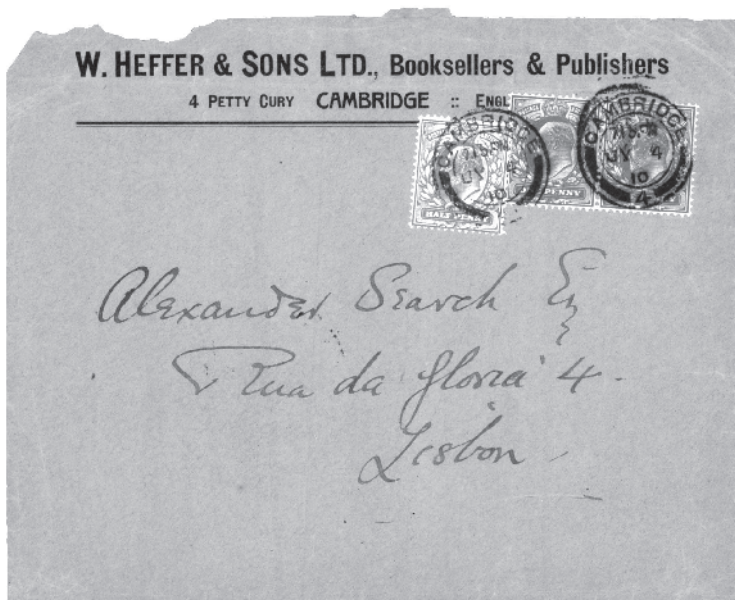 W. HEFFER & SONS LTD., Booksellers & Publishers
4 PETTY CURY CAMBRIDGE :: ENGL
CAMBRIDGE
JY 4
10
HALF PENNY
PENNY
CAMBRIDGE
JY 4
10
4
Alexander Search Esq
Rua da Gloria 4.
Lisbon